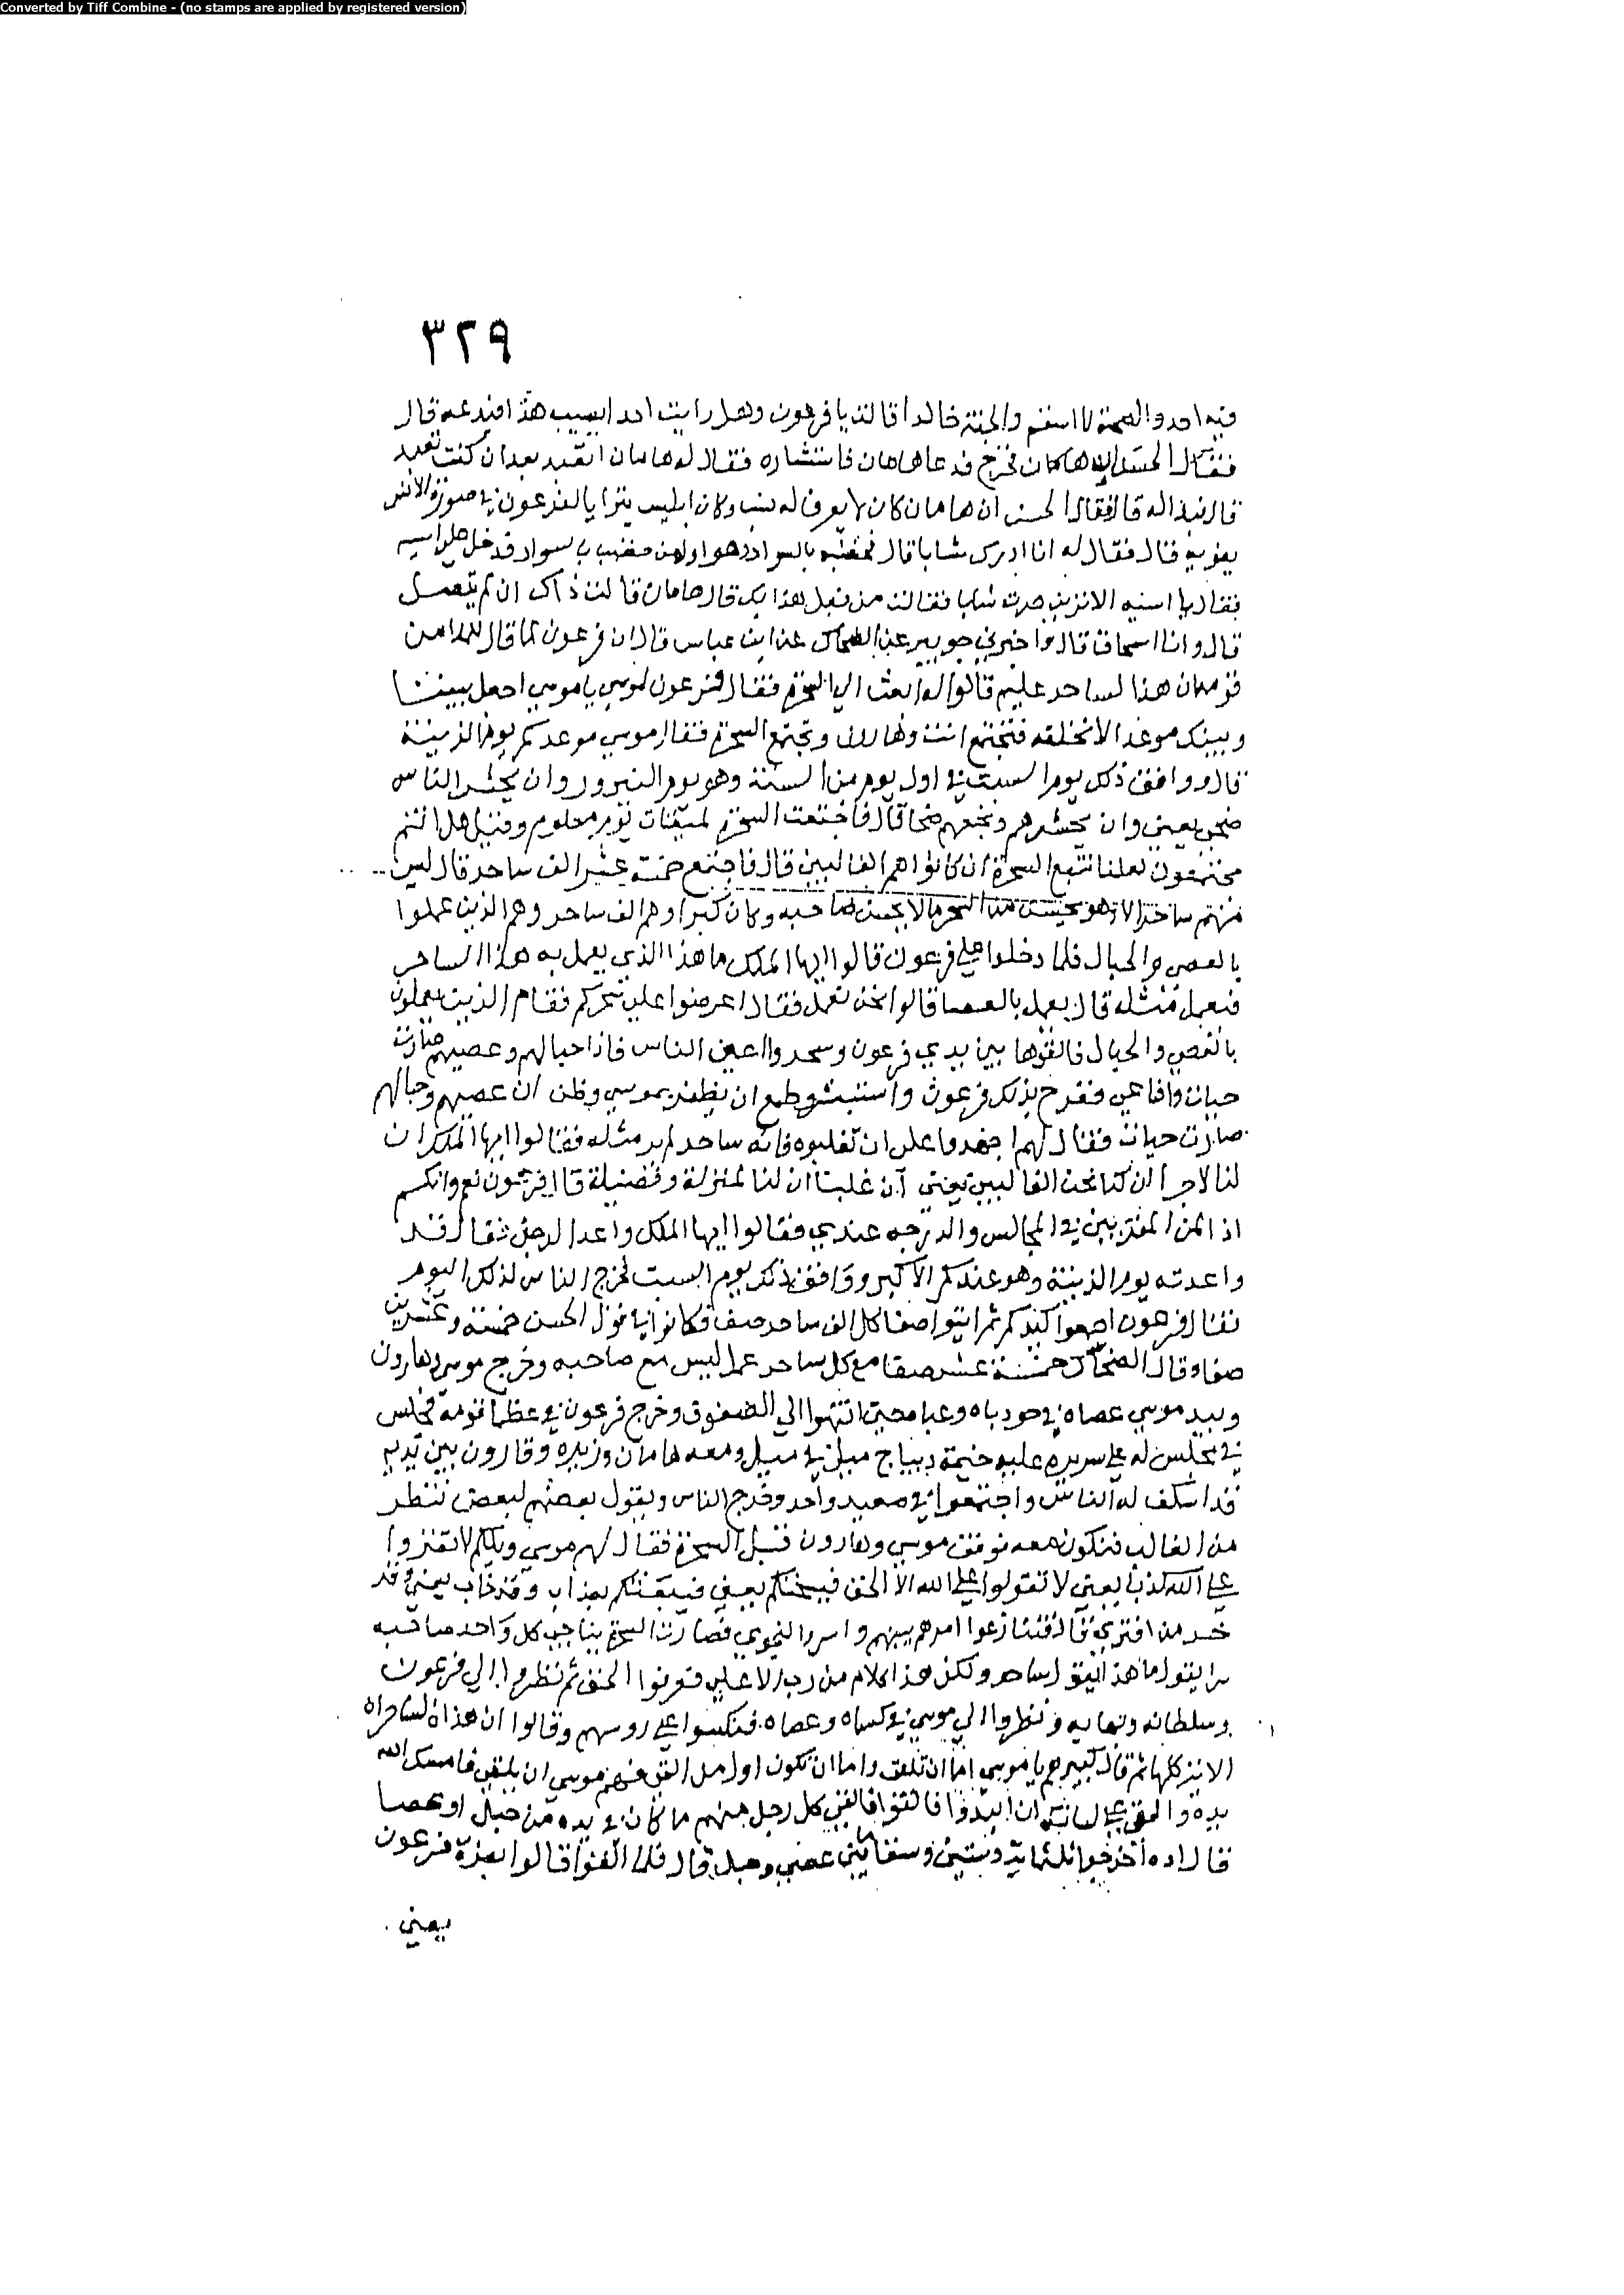 Converted by Tiff Combine - (no stamps are applied by registered version)
٣٢٩
فيه احد والصحة لا اسقم والجنة خالدا قالت يا فرعون وهل رايت احدا يصيب هذا فيدعه قال
فقال الحسن هامان فخرج فدعا هامان فاستشاره فقال له هامان اتعبد بعد ان كنت تعبد
قال فقال الحسن ان هامان كان لا يعرف له نسب وكان ابليس يترايا لفرعون في صورة الانس
يغويه قال فقال له انا اردك شابا قال فخضبه بالسواد وهو اول من خضب بالسواد فدخل على اسيه
فقال يا اسيه الا ترين صرت شابا فقالت من فعل هذا بك قال هامان قالت ذاك ان لم ينصل
قال وانا اسحاق قال واخبرني جويبر عن الضحاك عن ابن عباس قال ان فرعون لما قال للملا من
قومه ان هذا لساحر عليم قالوا له ابعث الى السحرة فقال فرعون لموسي يا موسي اجعل بيننا
وبينك موعدا لا نخلفه فتجتمع انت وهارون وتجتمع السحرة فقال موسي موعدكم يوم الزينة
قال ووافق ذلك يوم السبت في اول يوم من السنة وهو يوم النيروز وان يحشر الناس
ضحى يعني وان يحشرهم ونجمعهم ضحا قال فاجتمعت السحرة لميقات يوم معلوم وقيل هل انتم
مجتمعون لعلنا نتبع السحرة ان كانوا هم الغالبين قال فاجتمع خمسة عشر الف ساحر قال ليس
منهم ساحر الا وهو يحسن من السحر ما لا يحسن صاحبه وكان كبراوهم الف ساحر وهم الذين عملوا
بالعصي والحبال فلما دخلوا على فرعون قالوا ايها الملك ما هذا الذي يعمل به هذا الساحر
فنعمل مثله قال يعمل بالعصا قالوا نحن نعمل فقال اعرضوا علي سحركم فقام الذين يعملون
بالعصي والحبال فالقوها بين يدي فرعون وسحروا اعين الناس فاذا حبالهم وعصيهم صارت
حيات وافاعي ففرح بذلك فرعون واستبشر وطمع ان يظفر بموسي وظن ان عصيهم وحبالهم
صارت حيات فقال لهم اجهدوا على ان تغلبوه فانه ساحر لم ير مثله فقالوا ايها الملك ان
لنا لاجرا ان كنا نحن الغالبين يعني ان غلبنا ان لنا لمنزلة وفضيلة قال فرعون نعم وانكم
اذا لمن المقربين في المجالس والدرجه عندي فقالوا ايها الملك واعد الرجل فقال قد
واعدته يوم الزينة وهو عندكم الاكبر ووافق ذلك يوم السبت فخرج الناس لذلك اليوم
فقال فرعون اجمعوا كيدكم ثم ايتوا صفا كل الف ساحر صف فكانوا في قول الحسن خمسة وعشرين
صفا وقال الضحاك خمسة عشر صفا مع كل ساحر عمل ليس مع صاحبه وخرج موسى وهارون
وبيد موسي عصاه في حتى انتهوا الى الصفوف وخرج فرعون في عظما قومه فجلس
في مجلس له على سريره عليه خيمة ديباج ميل في ميل ومعه هامان وزيره وقارون بين يديه
قد استكف له الناس واجتمعوا في صعيد واحد وخرج الناس ويقول بعضهم لبعض ننظر
من الغالب فنكون معه فوقف موسي وهارون قبل السحرة فقال لهم موسى ويلكم لا تفتروا
على الله كذبا يعني لا تقولوا على الله الا الحق فيسحتكم يعني فيبعثكم بعذاب وقد خاب يعني وقد
خسر من افترى قال فتنازعوا امرهم بينهم واسروا النجوى فصارت السحرة يناجي كل واحد صاحبه
سرا يقول ما هذا بقول ساحر ولكن هذا كلام من رب الاعلى فعرفوا الحق ثم نظروا الى فرعون
وسلطانه وبهايه ونظروا الى موسي في كساه وعصاه فنكسوا على روسهم وقالوا ان هذان لساحران
الايتين كلها ثم قال كبيرهم يا موسي اما ان تلقى واما ان نكون اول من القى فهم موسي ان يلقي فامسك الله
يده والقى على لسانه ان ابدوا فالقوا فالقى كل رجل منهم ما كان في يده من حبل او عصا
قالوا بعزة فرعون
يعني